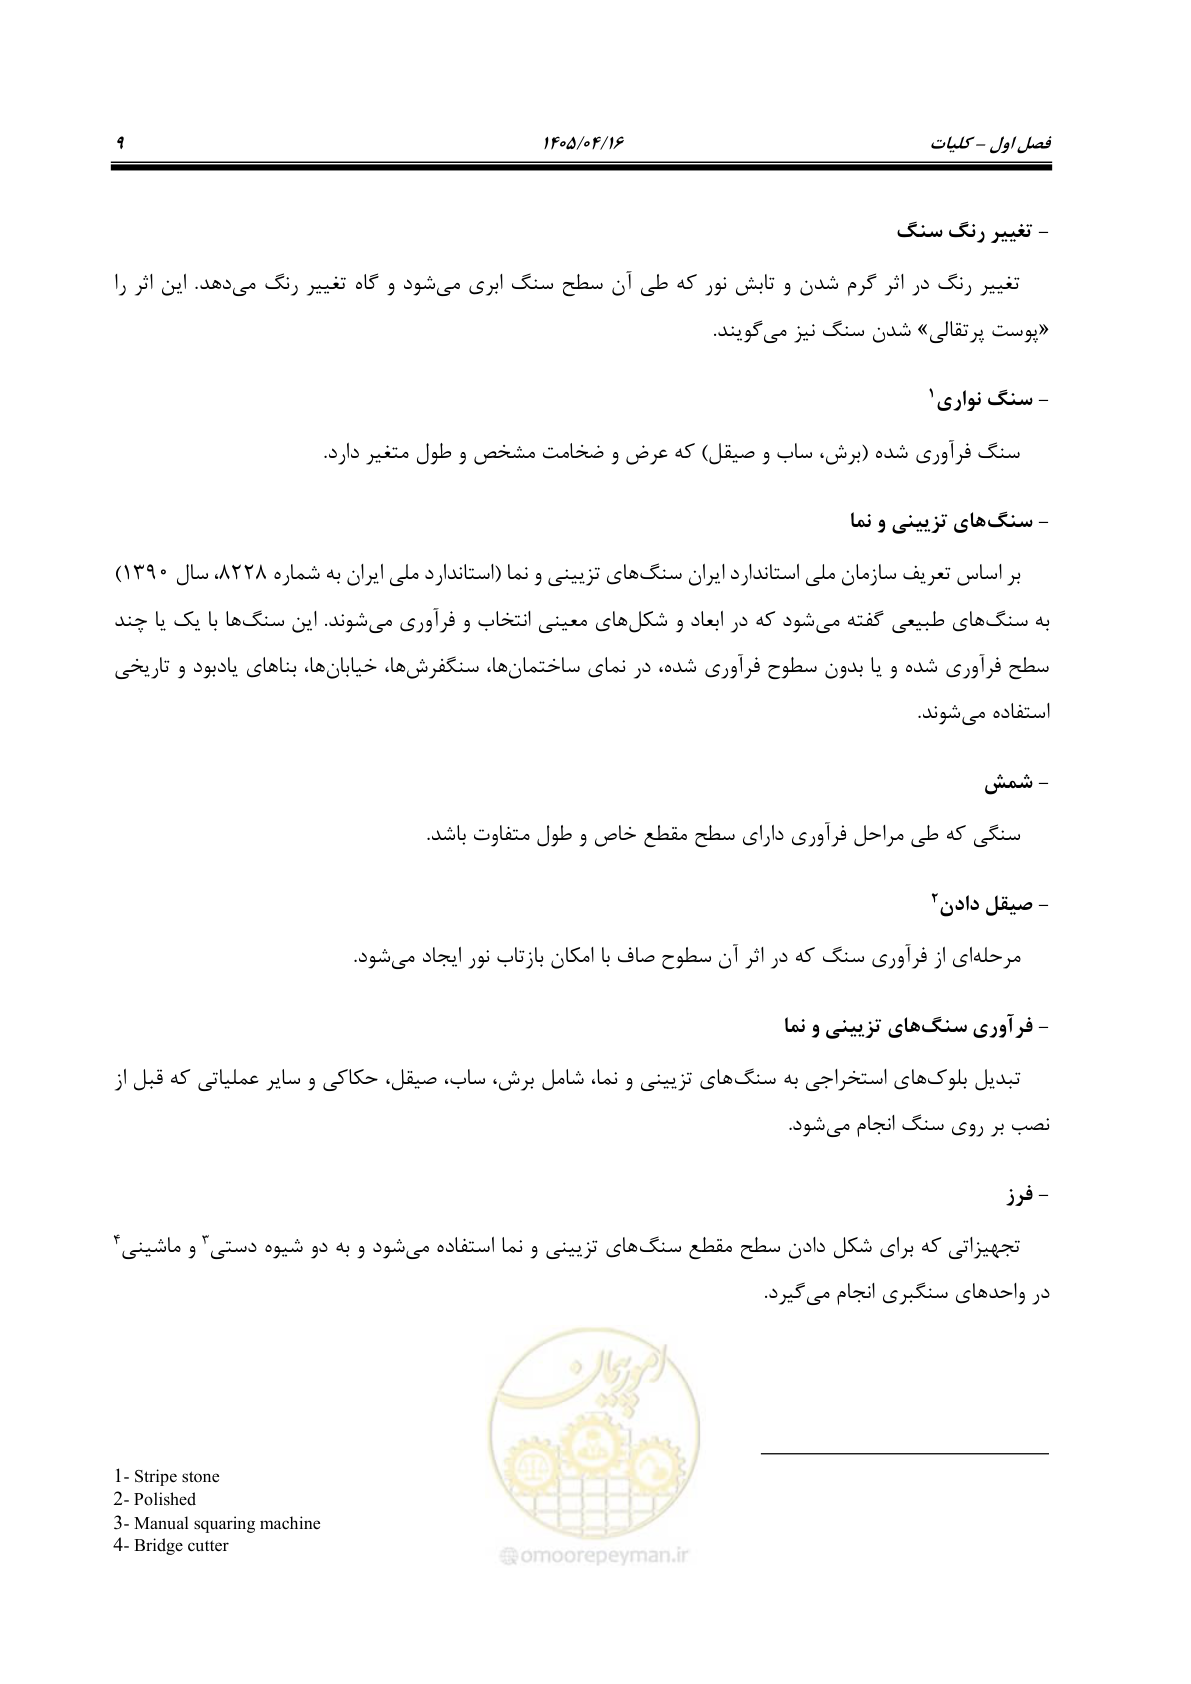 فصل اول – کلیات ۱۴۰۵/۰۴/۱۶ ۹
– تغییر رنگ سنگ
تغییر رنگ در اثر گرم شدن و تابش نور که طی آن سطح سنگ ابری می‌شود و گاه تغییر رنگ می‌دهد. این اثر را
«پوست پرتقالی» شدن سنگ نیز می‌گویند.
– سنگ نواری۱
سنگ فرآوری شده (برش، ساب و صیقل) که عرض و ضخامت مشخص و طول متغیر دارد.
– سنگ‌های تزیینی و نما
بر اساس تعریف سازمان ملی استاندارد ایران سنگ‌های تزیینی و نما (استاندارد ملی ایران به شماره ۸۲۲۸، سال ۱۳۹۰)
به سنگ‌های طبیعی گفته می‌شود که در ابعاد و شکل‌های معینی انتخاب و فرآوری می‌شوند. این سنگ‌ها با یک یا چند
سطح فرآوری شده و یا بدون سطوح فرآوری شده، در نمای ساختمان‌ها، سنگفرش‌ها، خیابان‌ها، بناهای یادبود و تاریخی
استفاده می‌شوند.
– شمش
سنگی که طی مراحل فرآوری دارای سطح مقطع خاص و طول متفاوت باشد.
– صیقل دادن۲
مرحله‌ای از فرآوری سنگ که در اثر آن سطوح صاف با امکان بازتاب نور ایجاد می‌شود.
– فرآوری سنگ‌های تزیینی و نما
تبدیل بلوک‌های استخراجی به سنگ‌های تزیینی و نما، شامل برش، ساب، صیقل، حکاکی و سایر عملیاتی که قبل از
نصب بر روی سنگ انجام می‌شود.
– فرز
تجهیزاتی که برای شکل دادن سطح مقطع سنگ‌های تزیینی و نما استفاده می‌شود و به دو شیوه دستی۳ و ماشینی۴
در واحدهای سنگبری انجام می‌گیرد.
امور پیمان
1- Stripe stone
2- Polished
3- Manual squaring machine
4- Bridge cutter
@omoorepeyman.ir